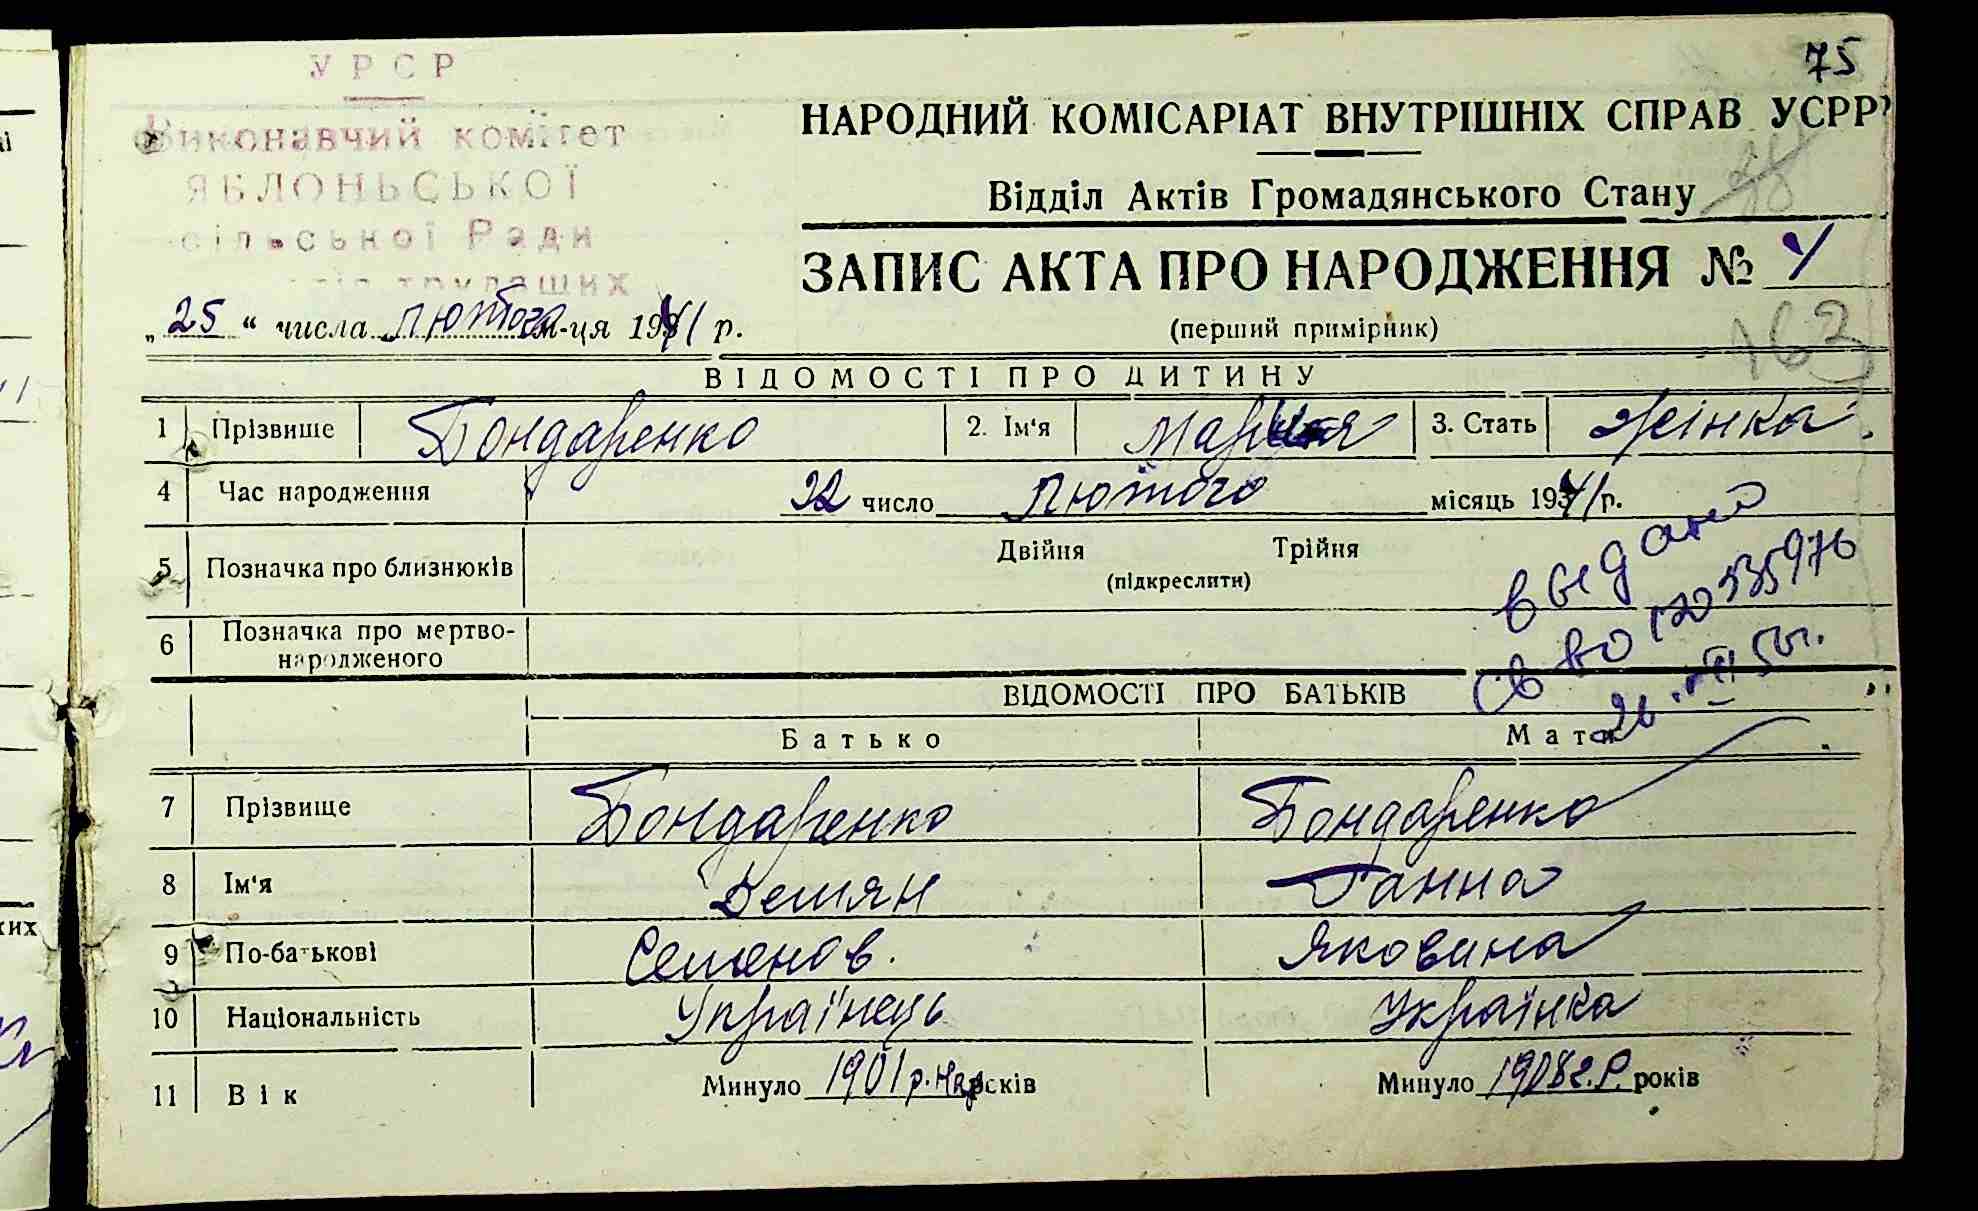 75
УРСР
Виконавчий комітет
ЯБЛОНЬСЬКОЇ
сільської Ради
трудящих
НАРОДНИЙ КОМІСАРІАТ ВНУТРІШНІХ СПРАВ УСРР
Відділ Актів Громадянського Стану
ЗАПИС АКТА ПРО НАРОДЖЕННЯ № 4
(перший примірник)
163
„25“ числа лютого м-ця 1941 р.
ВІДОМОСТІ ПРО ДИТИНУ
1 Прізвише Бондаренко 2. Ім'я Марія 3. Стать Жінка.
4 Час народження 22 число Лютого місяць 1941 р.
5 Позначка про близнюків Двійня Трійня
(підкреслити)
6 Позначка про мертво-
народженого
выдано
ВІДОМОСТІ ПРО БАТЬКІВ
Батько Мати
7 Прізвище Бондаренко Бондаренко
8 Ім'я Демян Ганна
9 По-батькові Семенов. Яковина
10 Національність Українець Українка
11 Вік Минуло 1901 р. нар років Минуло 1908 г.р. років